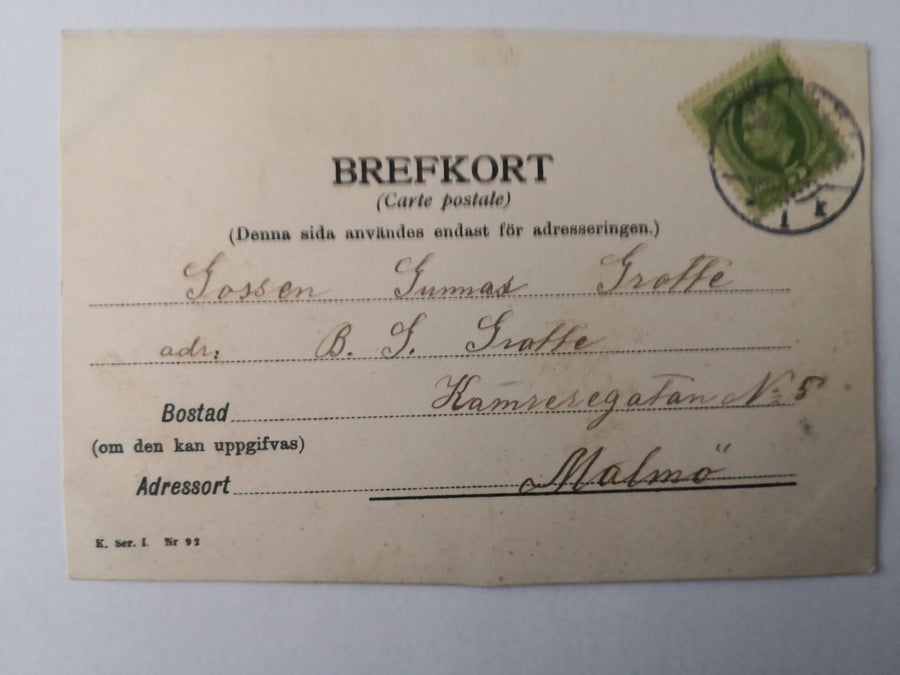 BREFKORT
(Carte postale)
(Denna sida användes endast för adresseringen.)
Gossen Gunnar Grotte
adr: B. G. Grotte
Bostad Kamreregatan No 5
(om den kan uppgifvas)
Adressort Malmö
K. Ser. I. Nr 92